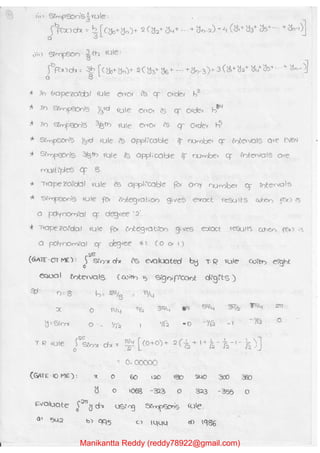 (ii) Simpson's 1/3 rule:
∫ₐᵇ f(x) dx = h/3 [(y₀+yₙ) + 2(y₂+y₄+ --- +yₙ₋₂) + 4(y₁+y₃+y₅+ --- +yₙ₋₁)]
(iii) Simpson 3/8 th rule:
∫ₐᵇ f(x) dx = 3h/8 [(y₀+yₙ) + 2(y₃+y₆+ --- +yₙ₋₃) + 3(y₁+y₂+y₄+y₅+ --- +yₙ₋₁)]
* In trapezoidal rule error is of order h²
* In Simpson's 1/3rd rule error is of order h⁴
* In Simpson's 3/8th rule error is of order
* Simpson's 1/3rd rule is applicable if number of intervals are EVEN
* Simpson's 3/8th rule is applicable if number of intervals are
multiples of 3.
* Trapezoidal rule is applicable for any number of intervals
* Simpson's rule for integration gives exact results when f(x) is
a polynomial of degree '2'.
* Trapezoidal rule for integration gives exact results when f(x) is
a polynomial of degree ≤ 1. (0 or 1)
(GATE-07-ME): ∫₀²π sinx dx is evaluated by T.R rule with eight
equal intervals (with 5 significant digits)
Sol: n=8 h= 2π/8 = π/4
x 0 π/4 π/2 3π/4 π 5π/4 3π/2 7π/4 2π
y=sinx 0 1/√2 1 1/√2 0 -1/√2 -1 -1/√2 0
T.R rule ∫₀²π sinx dx = π/4 /2 [(0+0) + 2(1/√2 + 1 + 1/√2 - 1/√2 - 1 - 1/√2)]
= 0.00000
(GATE 10 ME): x 0 60 120 180 240 300 360
y 0 1068 -323 0 323 -355 0
Evaluate ∫₀²π y dx using Simpson's rule.
a) 542 b) 995 c) 1444 d) 1986
Manikantta Reddy (reddy78922@gmail.com)